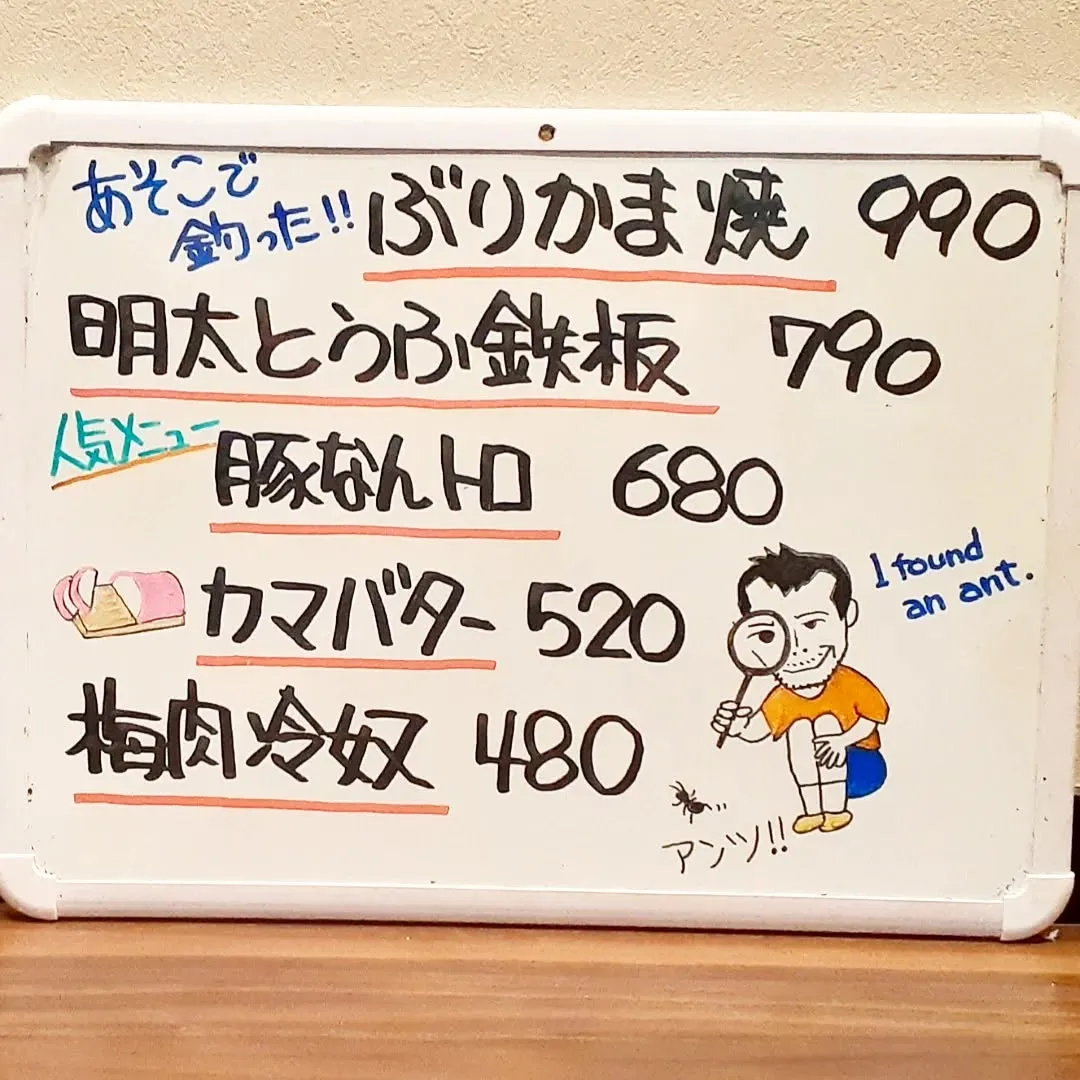 あそこで
釣った!! ぶりかま焼 990
明太とうふ鉄板 790
人気メニュー 豚なんトロ 680
カマバター 520
I found
an ant.
梅肉冷奴 480
アンツ!!